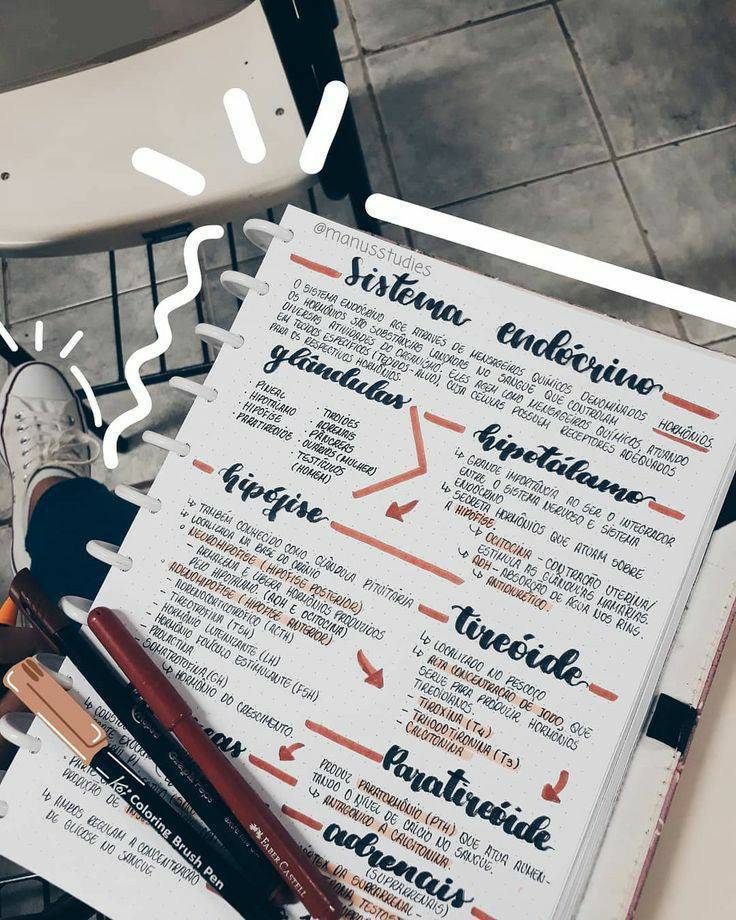 @manusstudies
Sistema endócrino
O SISTEMA ENDÓCRINO AGE ATRAVÉS DE MENSAGEIROS QUÍMICOS DENOMINADOS HORMÔNIOS.
OS HORMÔNIOS SÃO SUBSTÂNCIAS LANÇADAS NO SANGUE QUE CONTROLAM
DIVERSAS ATIVIDADES DO ORGANISMO. ELES AGEM COMO MENSAGEIROS QUÍMICOS, ATUANDO
EM TECIDOS ESPECÍFICOS (TECIDOS-ALVO), CUJA CÉLULAS POSSUEM RECEPTORES ADEQUADOS
PARA OS RESPECTIVOS HORMÔNIOS.
glândulas
· PINEAL
· HIPOTÁLAMO
· HIPÓFISE
· PARATIREÓIDES
· TIREÓIDES
· ADRENAIS
· PÂNCREAS
· OVÁRIOS (MULHER)
· TESTÍCULOS
(HOMEM)
hipotálamo
↳ GRANDE IMPORTÂNCIA AO SER O INTEGRADOR
ENTRE O SISTEMA NERVOSO E SISTEMA
ENDÓCRINO
↳ SECRETA HORMÔNIOS QUE ATUAM SOBRE
A HIPÓFISE
↳ OCITOCINA - CONTRAÇÃO UTERINA/
ESTIMULA AS GLÂNDULAS MAMÁRIAS.
↳ ADH - ABSORÇÃO DE ÁGUA NOS RINS.
↳ ANTIDIURÉTICO
hipófise
↳ TAMBÉM CONHECIDO COMO GLÂNDULA PITUITÁRIA
↳ LOCALIZADA NA BASE DO CRÂNIO
NEUROHIPÓFISE (HIPÓFISE POSTERIOR)
ARMAZENA E LIBERA HORMÔNIOS PRODUZIDOS
PELO HIPOTÁLAMO. (ADH E OCITOCINA)
ADENOHIPÓFISE (HIPÓFISE ANTERIOR)
- ADRENOCORTICOTRÓFICO (ACTH)
- TIREOTROFINA (TSH)
- HORMÔNIO LUTEINIZANTE (LH)
- HORMÔNIO FOLÍCULO ESTIMULANTE (FSH)
- PROLACTINA
- SOMATROTOFINA (GH)
↳ HORMÔNIO DO CRESCIMENTO.
tireóide
↳ LOCALIZADO NO PESCOÇO
↳ ALTA CONCENTRAÇÃO DE IODO, QUE
SERVE PARA PRODUZIR HORMÔNIOS
TIREOIDIANOS.
- TIROXINA (T4)
- TRIIODOTIRONINA (T3)
- CALCITONINA
Paratireóide
PRODUZ PARATORMÔNIO (PTH) QUE ATUA AUMEN-
TANDO O NÍVEL DE CÁLCIO NO SANGUE.
↳ ANTAGÔNICO A CALCITONINA
adrenais
(SUPRARRENAIS)
DA SUPRARRENAL -
TESTOS
PRODUÇÃO DE
↳ AMBOS REGULAM A CONCENTRAÇÃO
DE GLICOSE NO SANGUE.
Coloring Brush Pen
FABER-CASTELL